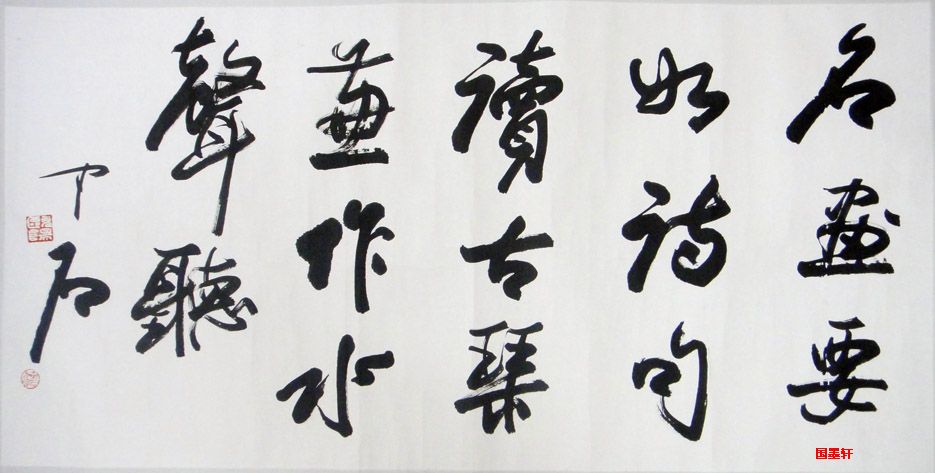 名畫要
如詩句
讀古琴
兼作水
聲聽
中石
国墨轩